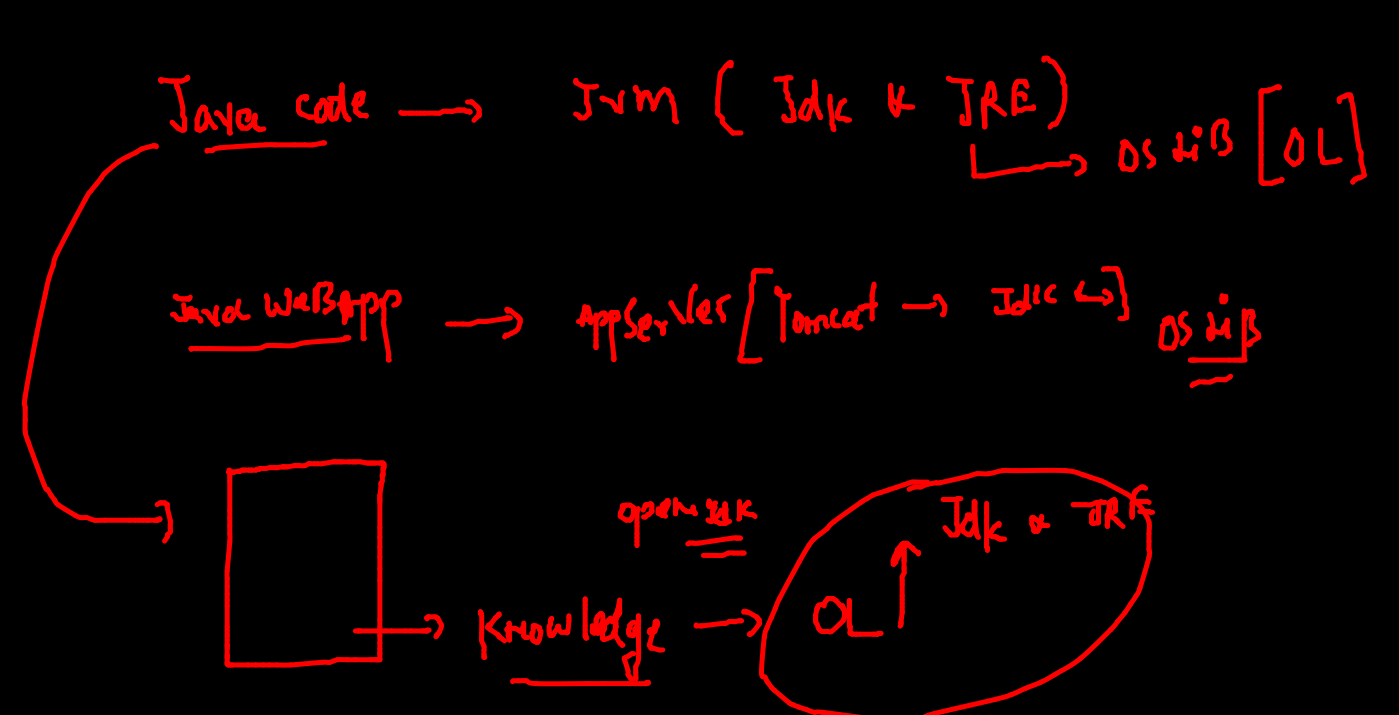 Java code → Jvm ( Jdk & JRE )
OS LiB [ OL ]
Java WeBapp → AppServer [ Tomcat → Jdk ↔ ] OS LiB
open Jdk
Jdk & JRE
Knowledge → OL ↑